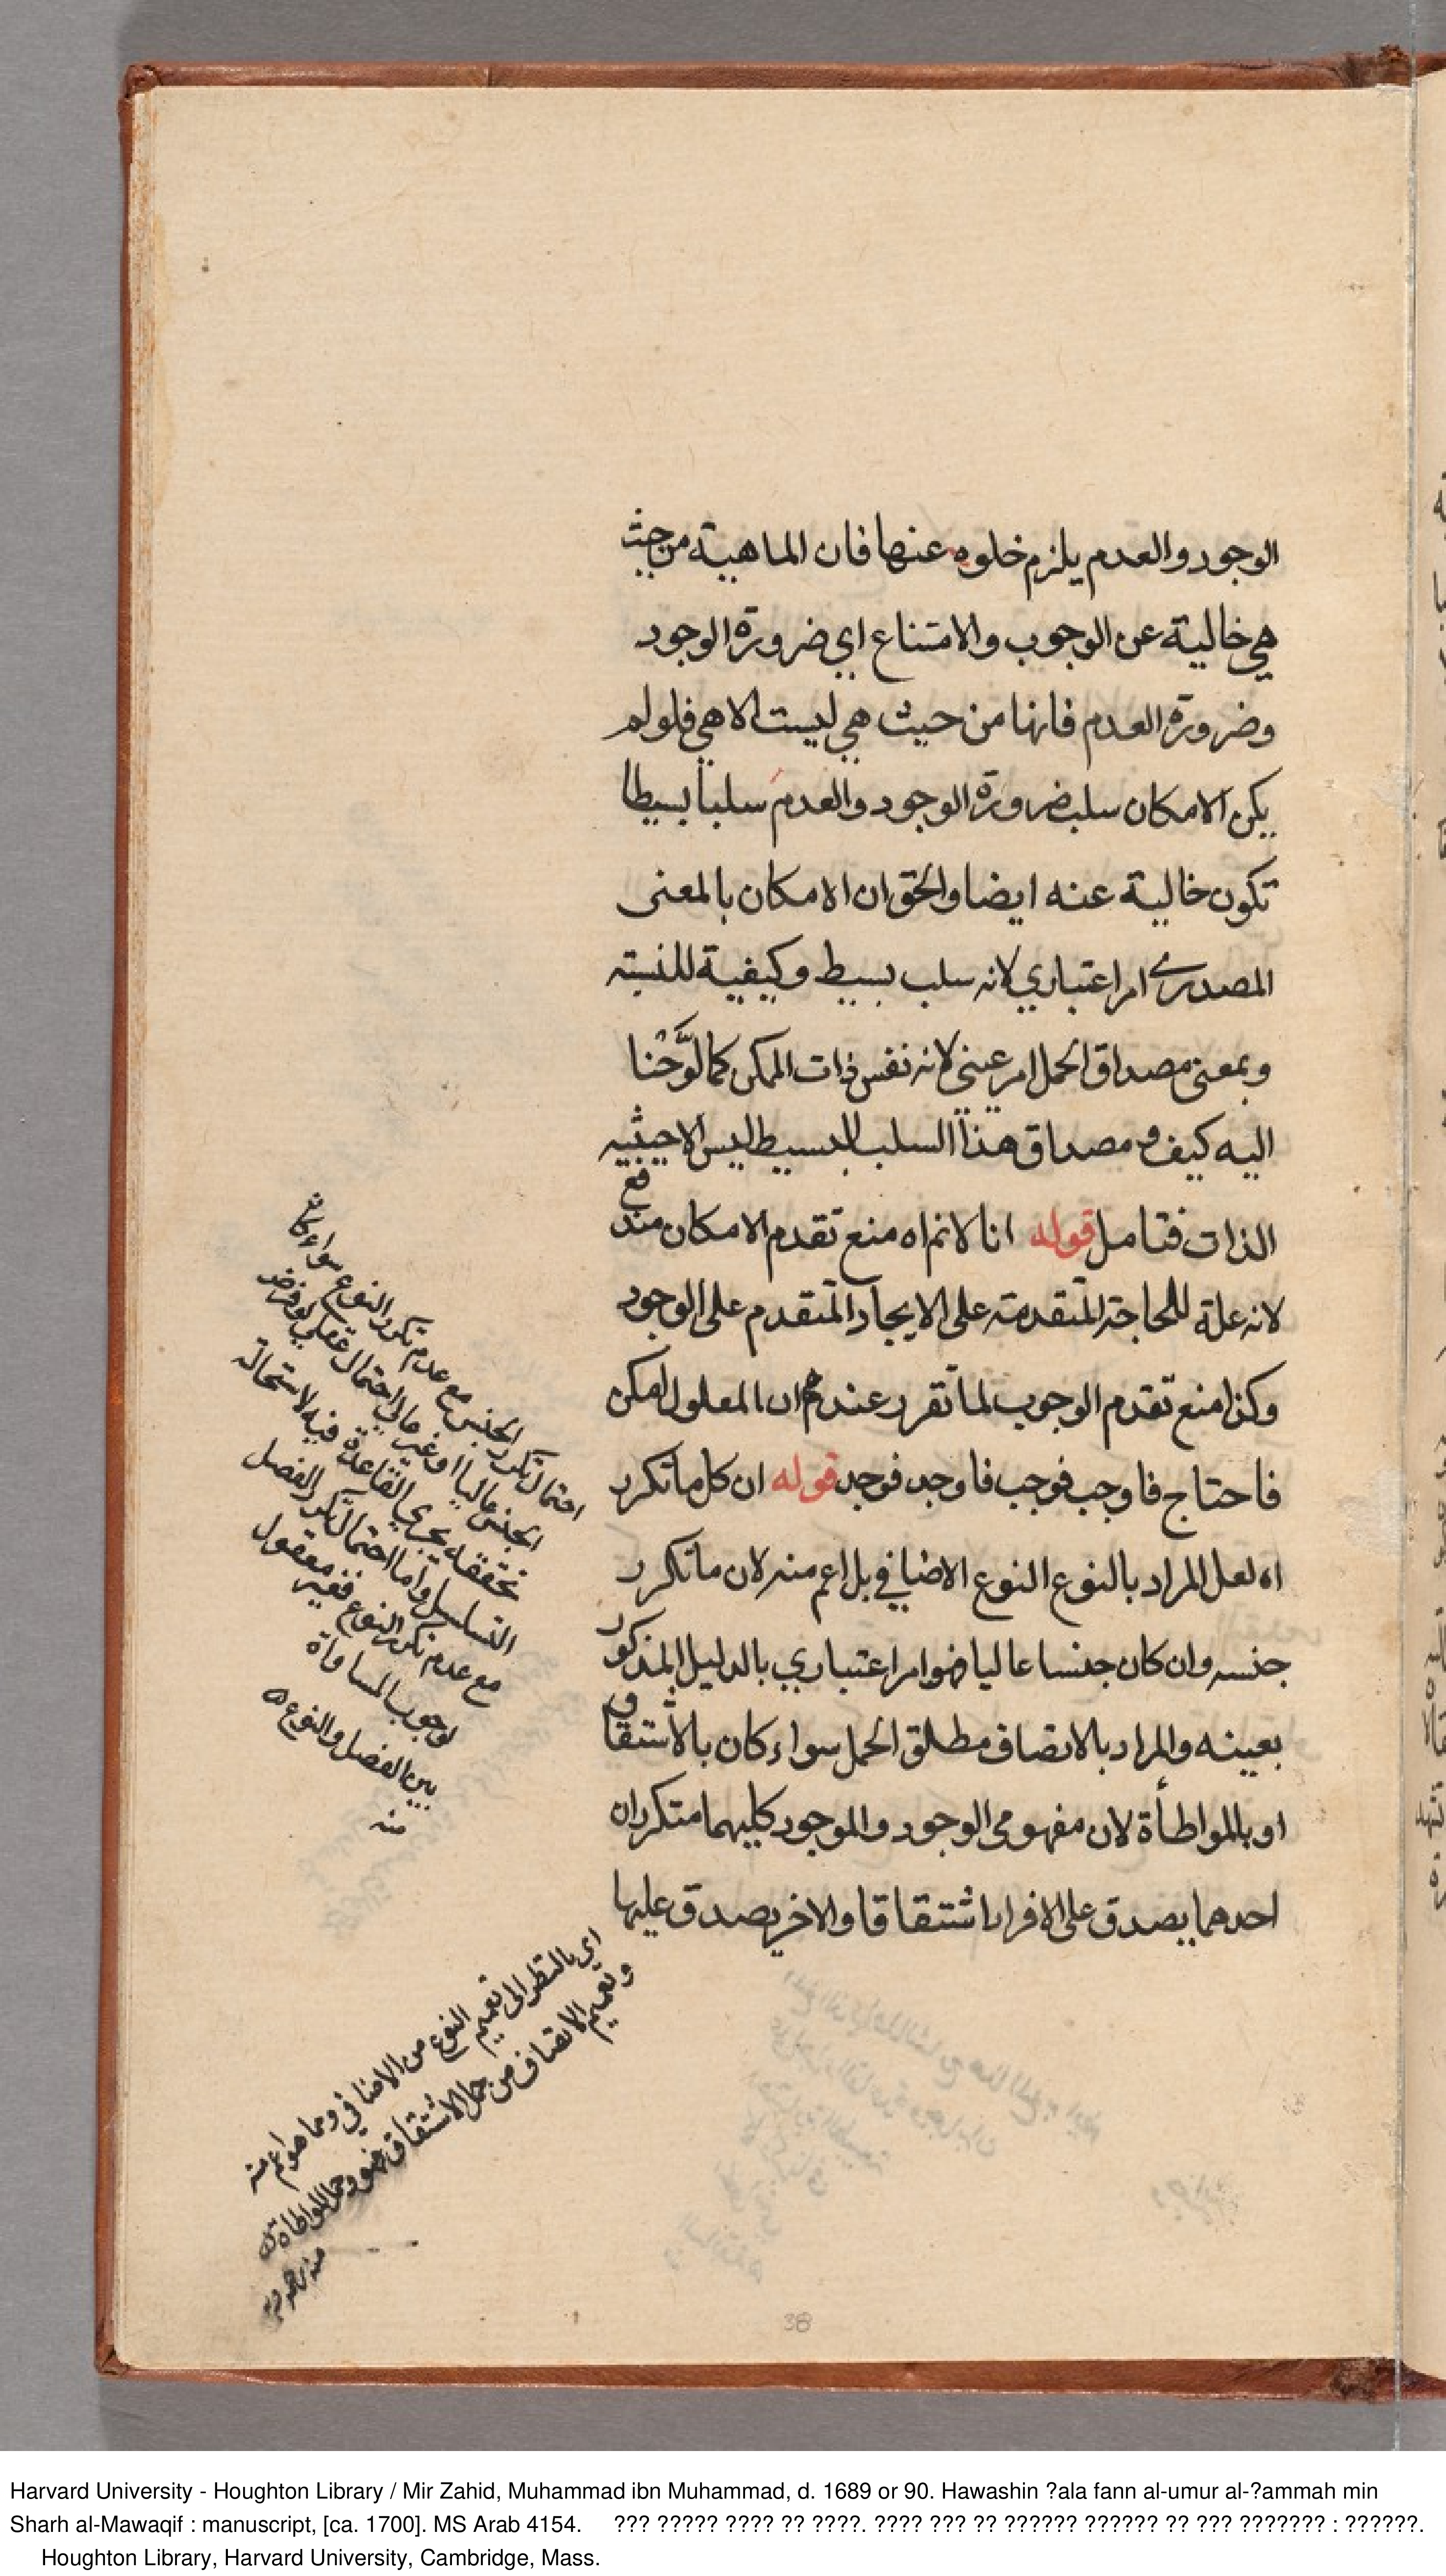 الوجود والعدم يلزم خلوه عنها فان الماهية من حيث
هي خالية عن الوجوب والامتناع اي ضرورة الوجود
وضرورة العدم فانها من حيث هي ليست الا هي فلو لم
يكن الامكان سلب ضرورة الوجود والعدم سلبا بسيطا
تكون خالية عنه ايضا والحق ان الامكان بالمعنى
المصدري امر اعتباري لانه سلب بسيط وكيفية للنسبة
وبمعنى مصداق الحمل امر عيني لانه نفس ذات الممكن كما لوّحنا
اليه كيف ومصداق هذا السلب البسيط ليس الا حيثية
الذات فتامل قوله انا لا نم اه منع تقدم الامكان مندفع
لانه علة للحاجة المتقدمة على الايجاد المتقدم على الوجود
وكذا منع تقدم الوجوب لما تقرر عندهم ان المعلول امكن
فاحتاج فاوجب فوجب فاوجد فوجد قوله ان كل ما تكرر
اه لعل المراد بالنوع النوع الاضافي بل اعم منه لان ما تكرر
جنسه وان كان جنسا عاليا فهو امر اعتباري بالدليل المذكور
بعينه والمراد بالاتصاف مطلق الحمل سواء كان بالاشتقاق
او بالمواطأة لان مفهومي الوجود والموجود كليهما متكرران
احدهما يصدق على الافراد اشتقاقا والاخر يصدق عليها
احتمال تكرر الجنس مع عدم تكرر النوع سواء كان
الجنس عاليا او غير عالي احتمال عقلي لو فرض
تحققه يجري القاعدة فيه لاستحالة
التسلسل واما احتمال تكرر الفصل
مع عدم تكرر النوع فغير معقول
لوجوب المساواة
بين الفصل والنوع
منه
اي بالنظر الى تعميم النوع من الاضافي ومما هو اعم منه
وتعميم الاتصاف من حمل الاشتقاق وحمل المواطاة
منه
38
Harvard University - Houghton Library / Mir Zahid, Muhammad ibn Muhammad, d. 1689 or 90. Hawashin ?ala fann al-umur al-?ammah min
Sharh al-Mawaqif : manuscript, [ca. 1700]. MS Arab 4154. ??? ????? ???? ?? ????. ???? ??? ?? ?????? ?????? ?? ??? ??????? : ??????.
Houghton Library, Harvard University, Cambridge, Mass.